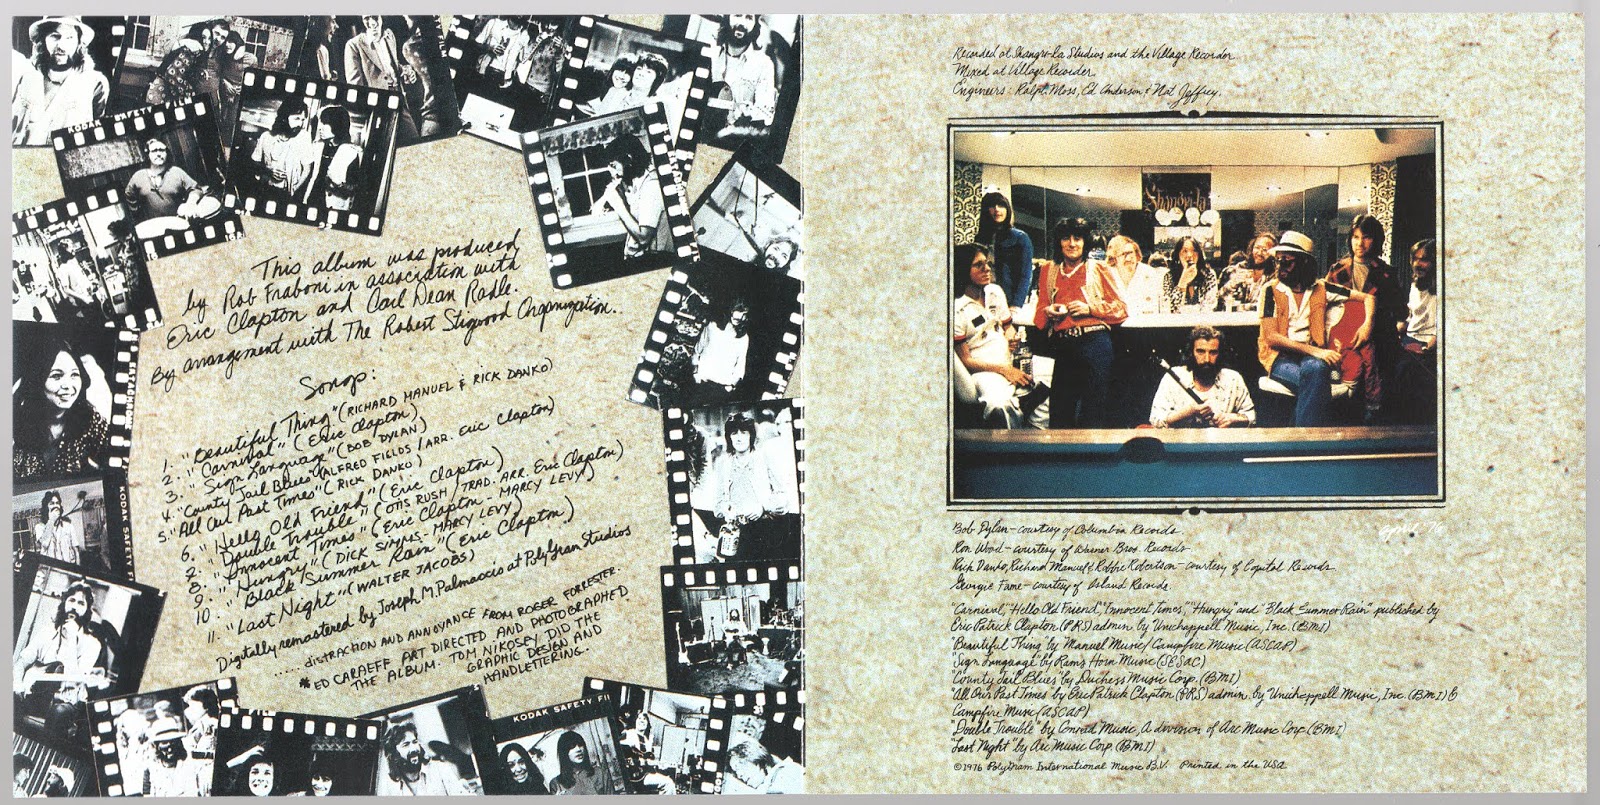 KODAK SAFETY FILM
This album was produced
by Rob Fraboni in association with
Eric Clapton and Carl Dean Radle.
By arrangement with The Robert Stigwood Organization.
Songs:
1. "Beautiful Thing" (RICHARD MANUEL & RICK DANKO)
2. "Carnival" (Eric Clapton)
3. "Sign Language" (BOB DYLAN)
4. "County Jail Blues" (ALFRED FIELDS / ARR. Eric Clapton)
5. "All Our Past Times" (RICK DANKO)
6. "Hello Old Friend" (Eric Clapton)
7. "Double Trouble" (OTIS RUSH / TRAD. ARR. Eric Clapton)
8. "Innocent Times" (Eric Clapton - MARCY LEVY)
9. "Hungry" (DICK SIMMS - MARCY LEVY)
10. "Black Summer Rain" (Eric Clapton)
11. "Last Night" (WALTER JACOBS)
Digitally remastered by Joseph M. Palmaccio at PolyGram Studios
....DISTRACTION AND ANNOYANCE FROM ROGER FORRESTER.
*ED CARAEFF ART DIRECTED AND PHOTOGRAPHED
THE ALBUM. TOM NIKOSEY DID THE
GRAPHIC DESIGN AND
HANDLETTERING.
KODAK SAFETY
KODAK SAFETY FI
Recorded at Shangri-La Studios and the Village Recorder
Mixed at Village Recorder
Engineers: Ralph Moss, Ed Anderson & Nat Jeffrey.
Shangri-La
Bob Dylan - courtesy of Columbia Records
Ron Wood - courtesy of Warner Bros. Records
Rick Danko, Richard Manuel & Robbie Robertson - courtesy of Capitol Records
Georgie Fame - courtesy of Island Records.
"Carnival," "Hello Old Friend," "Innocent Times," "Hungry" and "Black Summer Rain" published by
Eric Patrick Clapton (PRS) admin by Unichappell Music, Inc. (BMI)
"Beautiful Thing" by Manuel Music/Campfire Music (ASCAP)
"Sign Language" by Rams Horn Music (SESAC)
"County Jail Blues" by Duchess Music Corp. (BMI)
"All Our Past Times" by Eric Patrick Clapton (PRS) admin. by Unichappell Music, Inc. (BMI) &
Campfire Music (ASCAP)
"Double Trouble" by Conrad Music, A division of Arc Music Corp. (BMI)
"Last Night" by Arc Music Corp. (BMI)
©1976 PolyGram International Music B.V. Printed in the USA